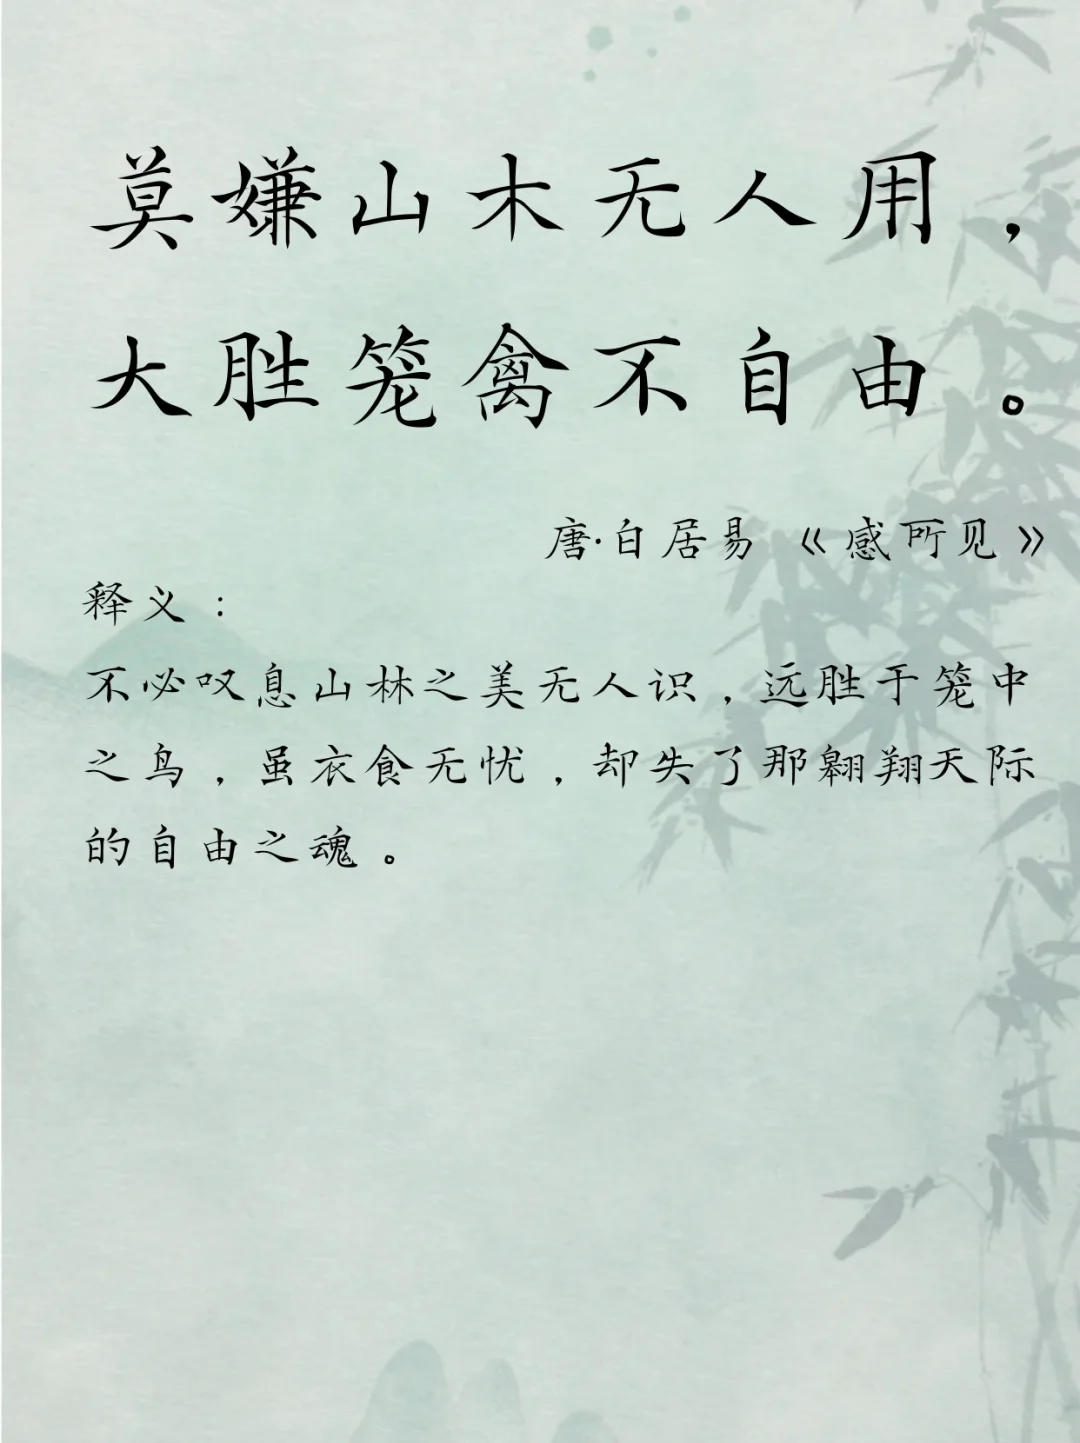 莫嫌山木无人用，
大胜笼禽不自由。
唐·白居易 《感所见》
释义：
不必叹息山林之美无人识，远胜于笼中
之鸟，虽衣食无忧，却失了那翱翔天际
的自由之魂。